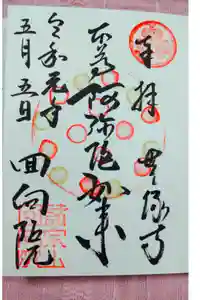 奉拝 無縁寺
本尊阿弥陀如来
令和元年
五月五日
回向院